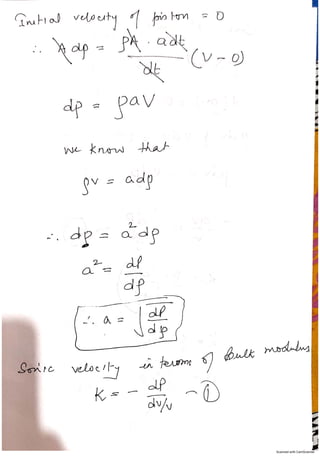 Initial velocity of piston = 0
∴ A dp = ρA . adt / dt (V - 0)
dp = ρaV
we know that
ρv = adρ
∴ dp = a² dρ
a² = dP / dρ
∴ a = √(dP / dρ)
Sonic velocity in terms of Bulk modulus
K = - dP / (dv/v) - ①
Scanned with CamScanner